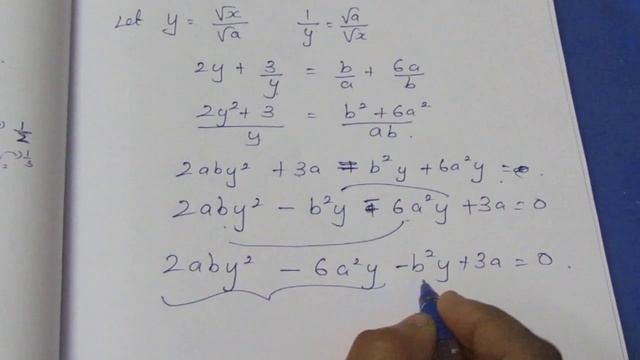 Let y = √x/√a    1/y = √a/√x
2y + 3/y = b/a + 6a/b
(2y² + 3)/y = (b² + 6a²)/ab
2aby² + 3a = b²y + 6a²y =
2aby² - b²y - 6a²y + 3a = 0
2aby² - 6a²y - b²y + 3a = 0.